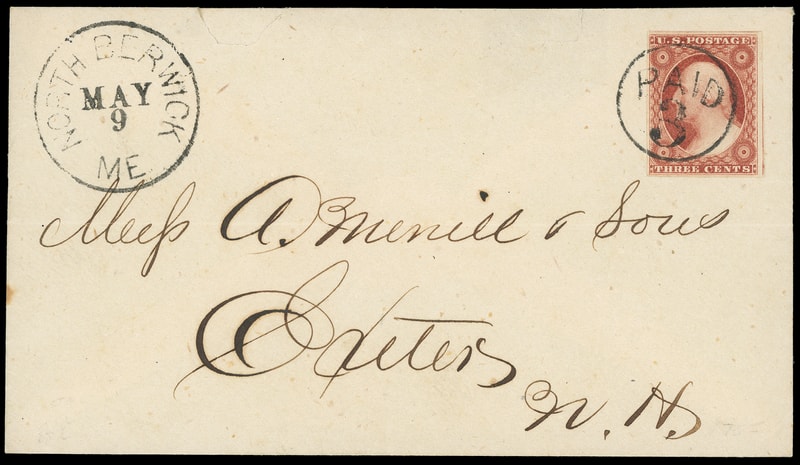 NORTH BERWICK
MAY
9
ME
U.S. POSTAGE
PAID
3
THREE CENTS
Mess A. Merrill & Sons
Exeter
N.H.